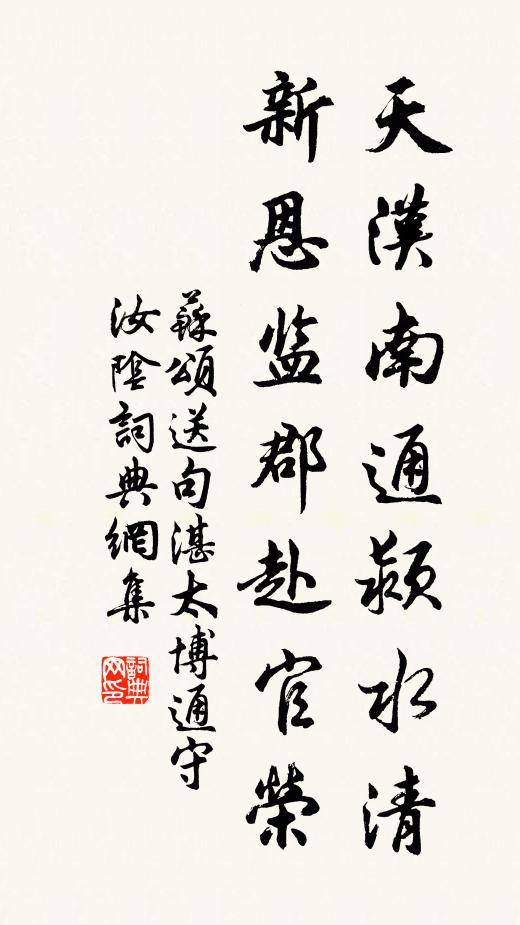 天漢南通潁水清
新恩監郡赴官榮
蘇頌送句湛太博通守
汝陰詞典網集
詞典网印